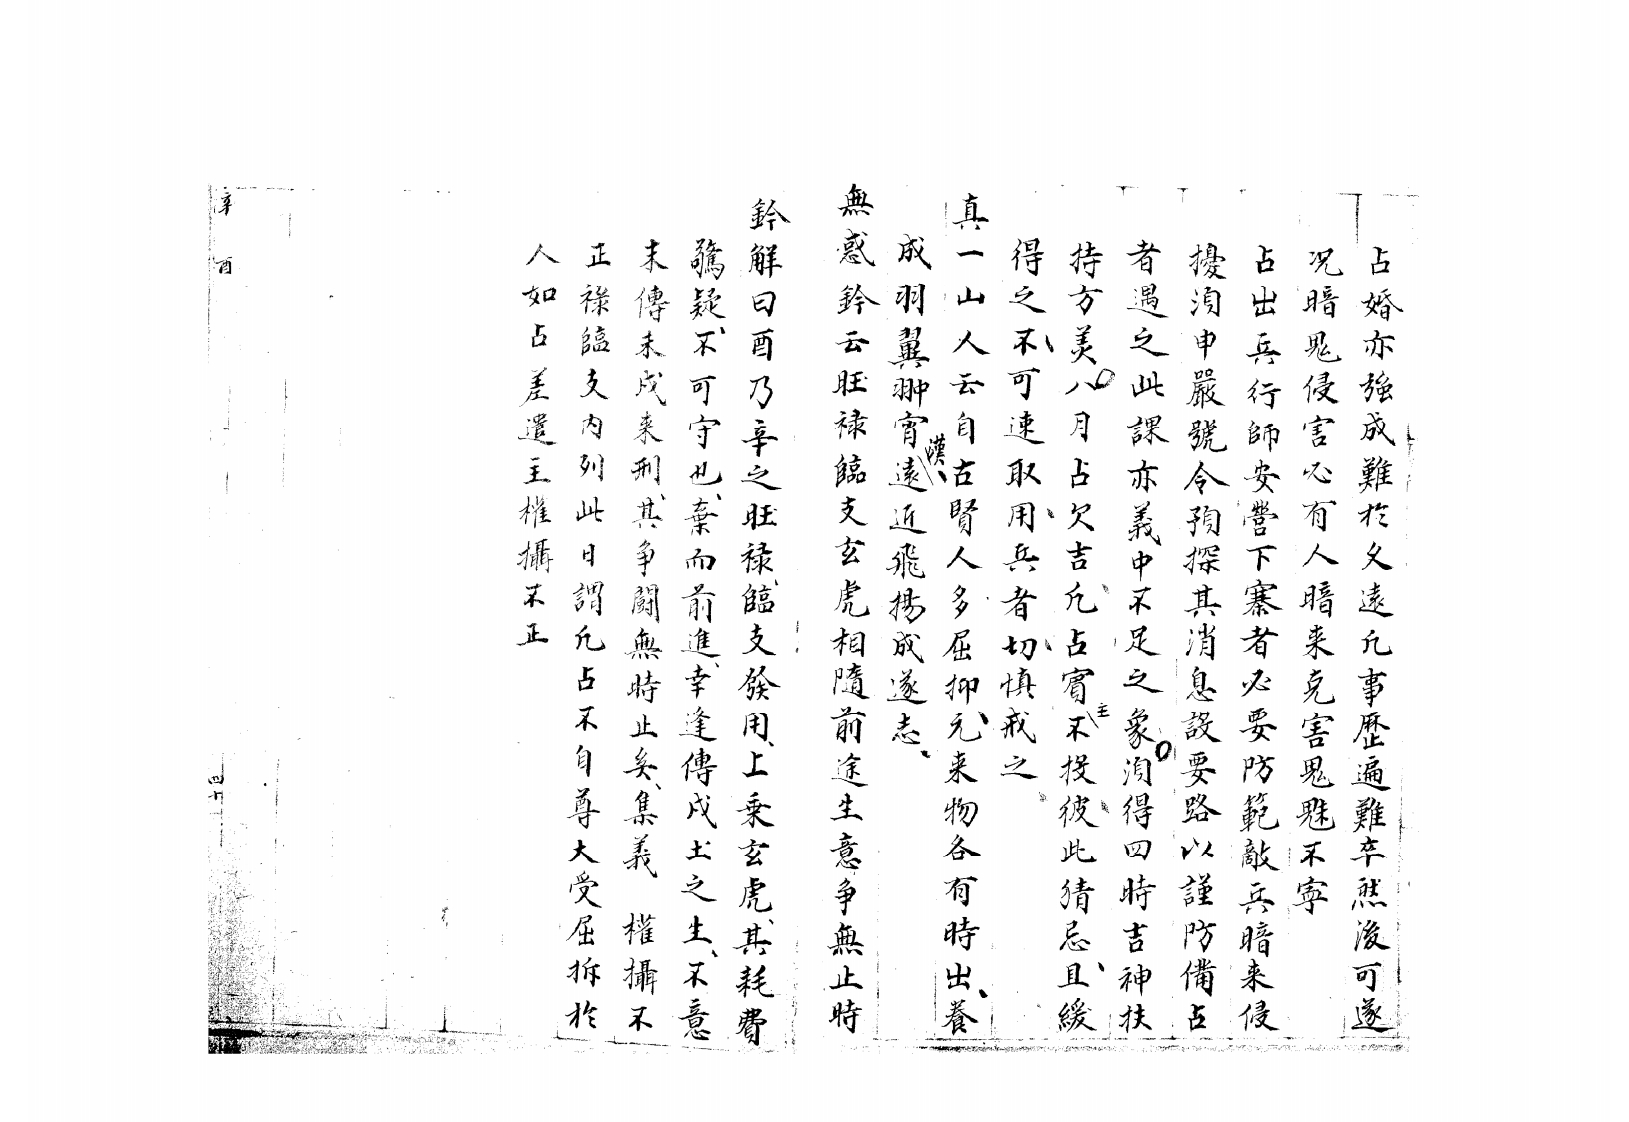 占婚亦強成難於久遠凡事歷遍難卒然後可遂
况暗鬼侵害必有人暗来克害鬼魅不寧
占出兵行師安營下寨者必要防範敵兵暗来侵
擾湏申嚴號令預探其消息設要路以謹防備占
者遇之此課亦義中不足之象湏得四時吉神扶
持方美八月占欠吉凡占賓主不投彼此猜忌且緩
得之不可速取用兵者切慎戒之
真一山人云自古賢人多屈抑元来物各有時出養
成羽翼翀霄漢遠近飛揚成遂志
無惑鈐云旺祿臨支玄虎相隨前途生意争無止時
鈐解曰酉乃辛之旺祿臨支發用上乗玄虎其耗費
驚疑不可守也棄而前進幸逢傳戌土之生不意
末傳未戌来刑其争鬪無時止矣集義　權攝不
正祿臨支内列此日謂凡占不自尊大受屈折於
人如占差遣主權攝不正
辛酉
四十